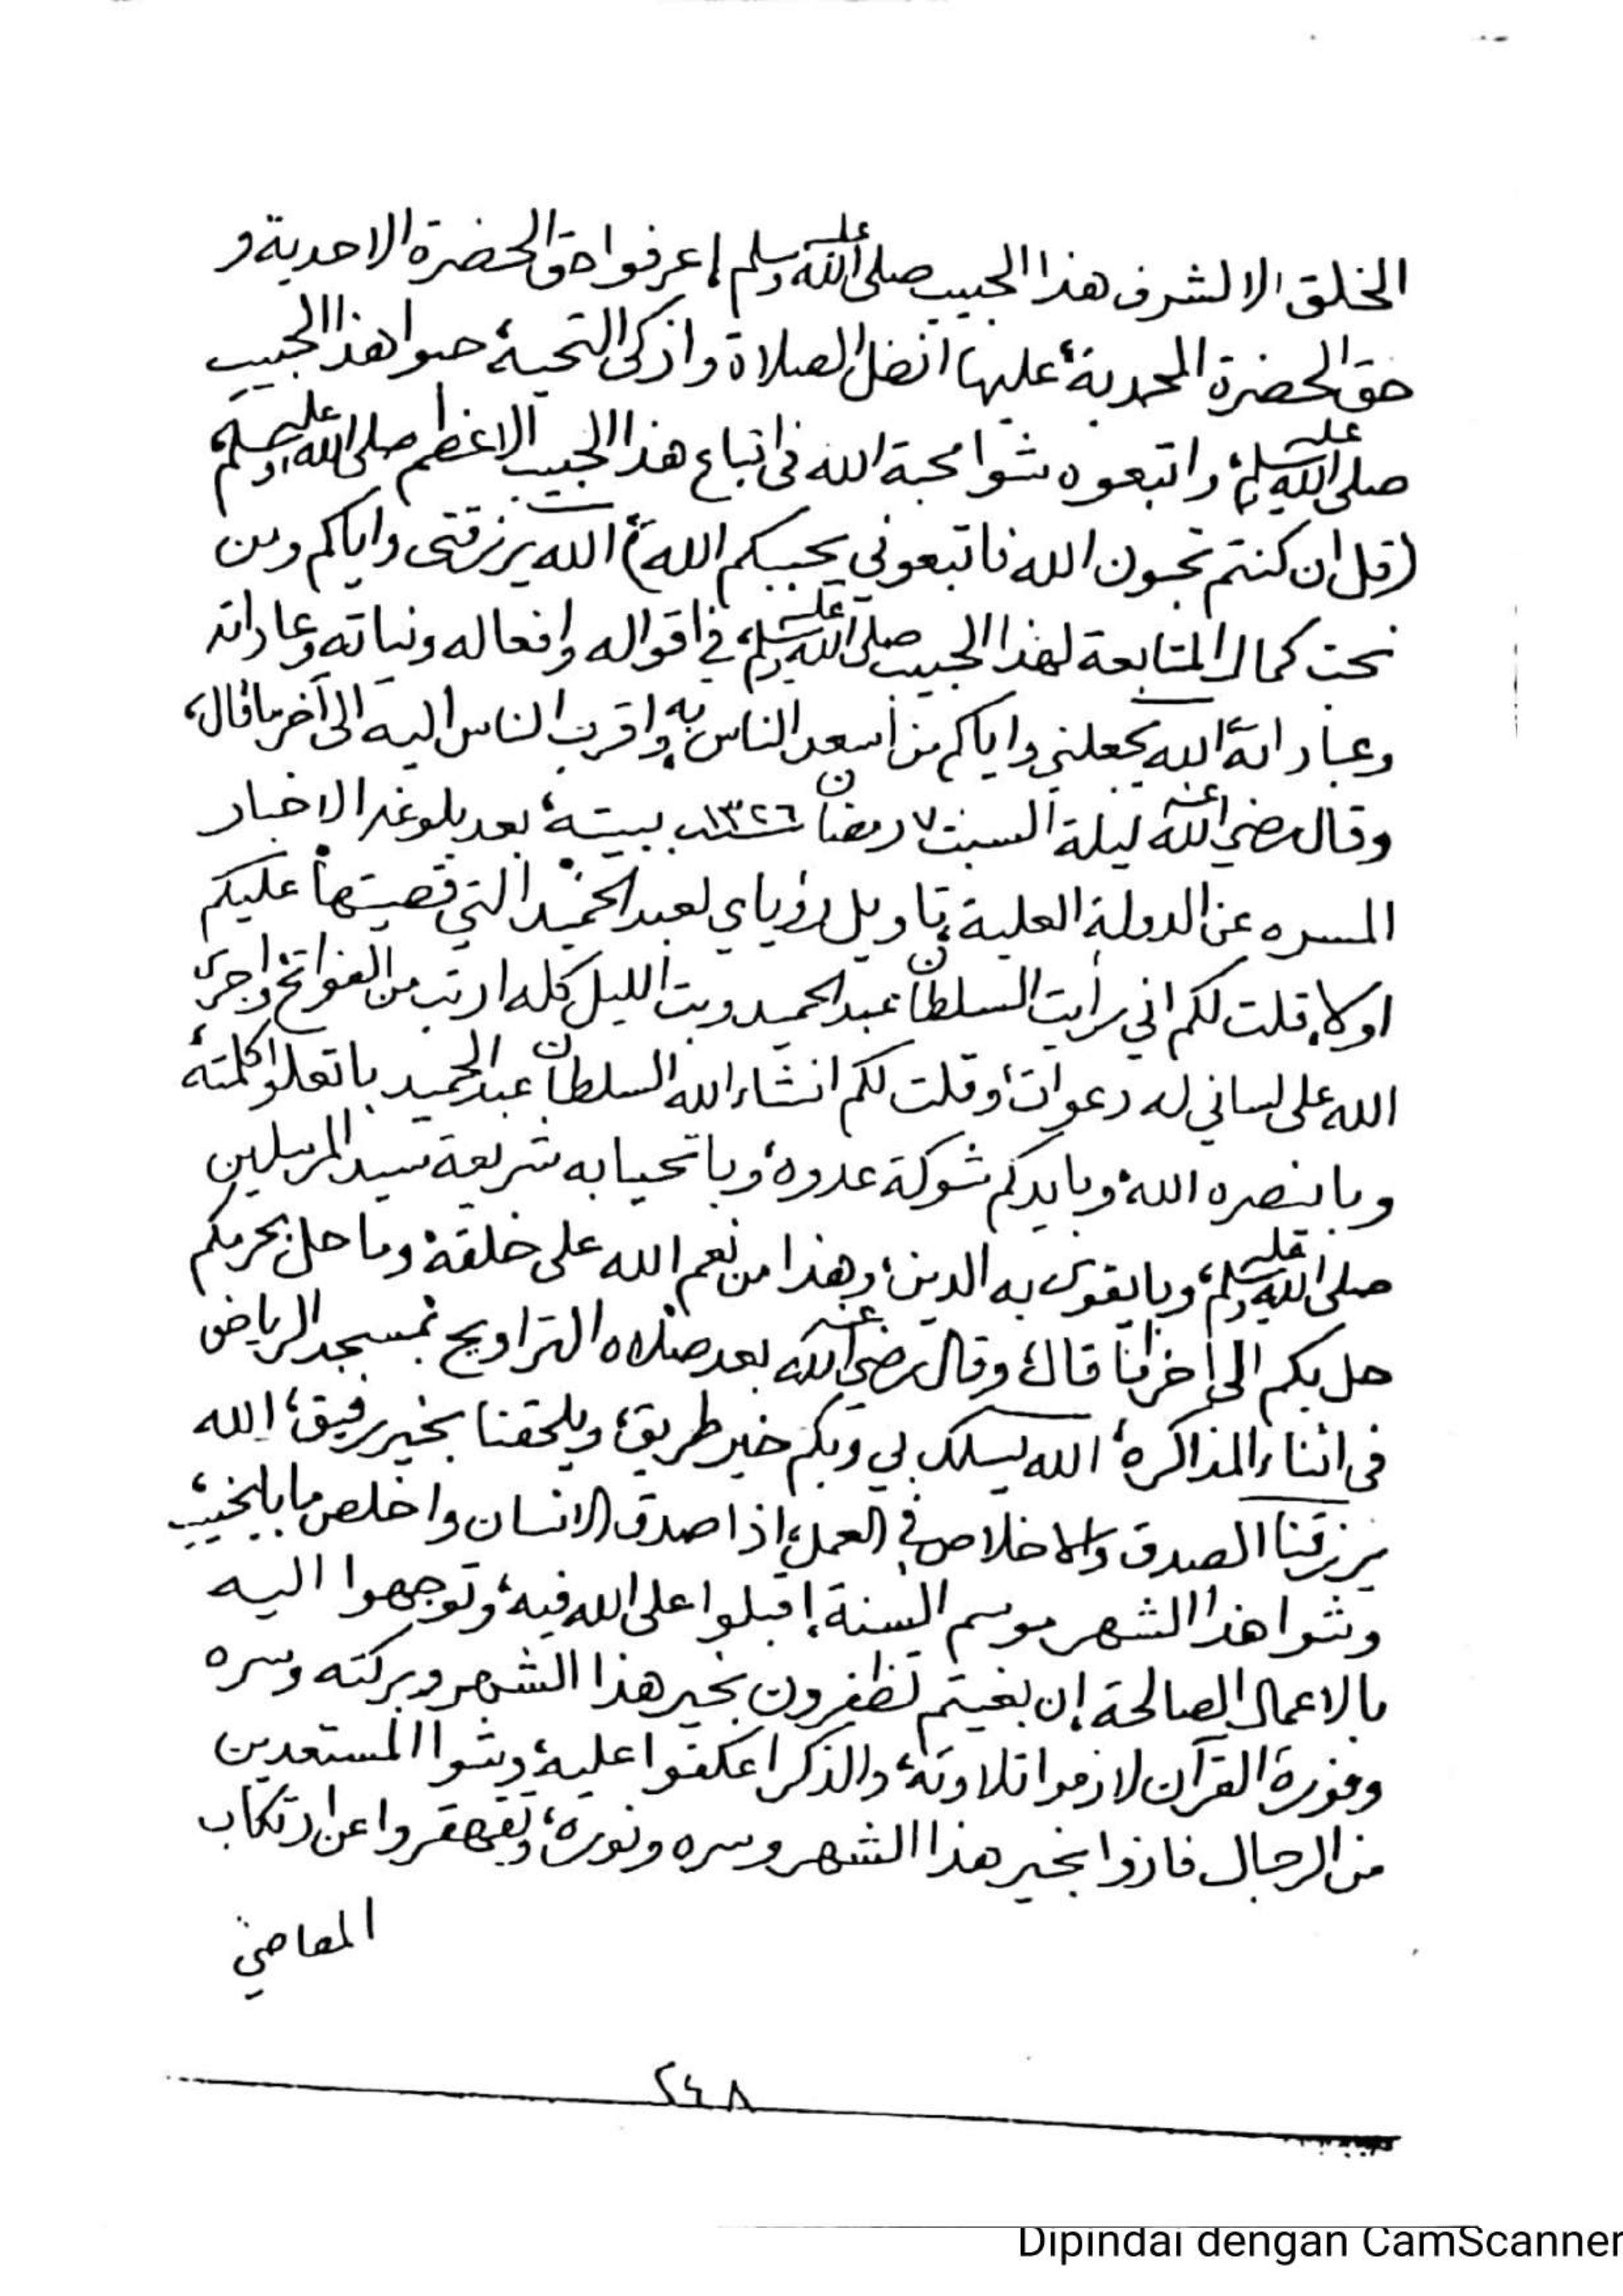 الخلق الا لشرف هذا الحبيب صلى الله عليه وسلم إعرفوا حق الحضرة الاحدية و
حق الحضرة المحمدية، عليها افضل الصلاة وازكى التحية، حبوا هذا الحبيب
صلى الله عليه وسلم، واتبعوه شوا محبة الله فى اتباع هذا الحبيب الاعظم صلى الله عليه وسلم
(قل ان كنتم تحبون الله فاتبعوني يحببكم الله) الله يرزقنى واياكم ومن
نحب كمال المتابعة لهذا الحبيب صلى الله عليه وسلم، في اقواله وافعاله ونياته وعاداته
وعباداته، الله يجعلني واياكم من أسعد الناس به، واقرب الناس اليه الى آخر ما قال،
وقال رضي الله عنه ليلة السبت ٧ رمضان ١٣٢٦ ببيته، بعد بلوغه الاخبار
المسره عن الدولة العلية، تاويل رؤياي لعبد الحميد التي قصيتها عليكم
اولا، قلت لكم اني رأيت السلطان عبد الحميد وبت الليل كله ارتب من الفواتح واجرى
الله على لساني له دعوات، وقلت لكم انشاء الله السلطان عبد الحميد باتعلو كلمته،
وباينصره الله، وبايدكم شوكة عدوه، وباتحيا به شريعة سيد المرسلين
صلى الله عليه وسلم، وبايقوى به الدين، وهذا من نعم الله على خلقه، وما حل بحرمكم
حل بكم الى اخر ما قال، وقال رضي الله عنه بعد صلاه التراويح بمسجد الرياض
فى اثناء المذاكره، الله يسلك بي وبكم خير طريق، ويلحقنا بخير رفيق، الله
يرزقنا الصدق والاخلاص في العمل، اذا صدق الانسان واخلص ما بايخيب،
وشوا هذا الشهر موسم السنة، إقبلوا على الله فيه، وتوجهوا اليه
بالاعمال الصالحة، إن بغيتم تظفرون بخير هذا الشهر وبركته وسره
ونوره القرآن لازموا تلاوته، والذكر اعكفوا عليه، وشوا المستعدين
من الرجال فازوا بخير هذا الشهر وسره ونوره، وتقهقروا عن ارتكاب
المعاصي
٢٤٨
Dipindai dengan CamScanner